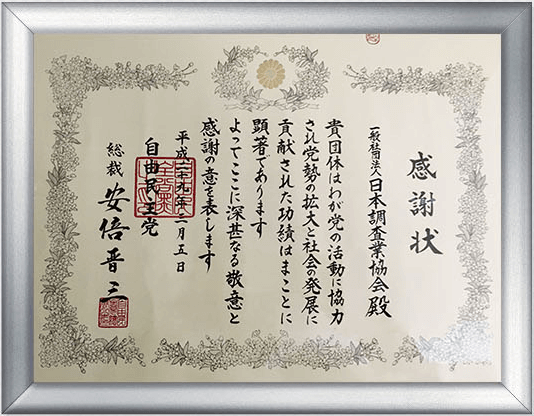 感謝状
一般社団法人日本調査業協会殿
貴団体はわが党の活動に協力
され党勢の拡大と社会の発展に
貢献された功績はまことに
顕著であります
よってここに深甚なる敬意と
感謝の意を表します
平成二十九年三月五日
自由民主党
総裁 安倍晋三